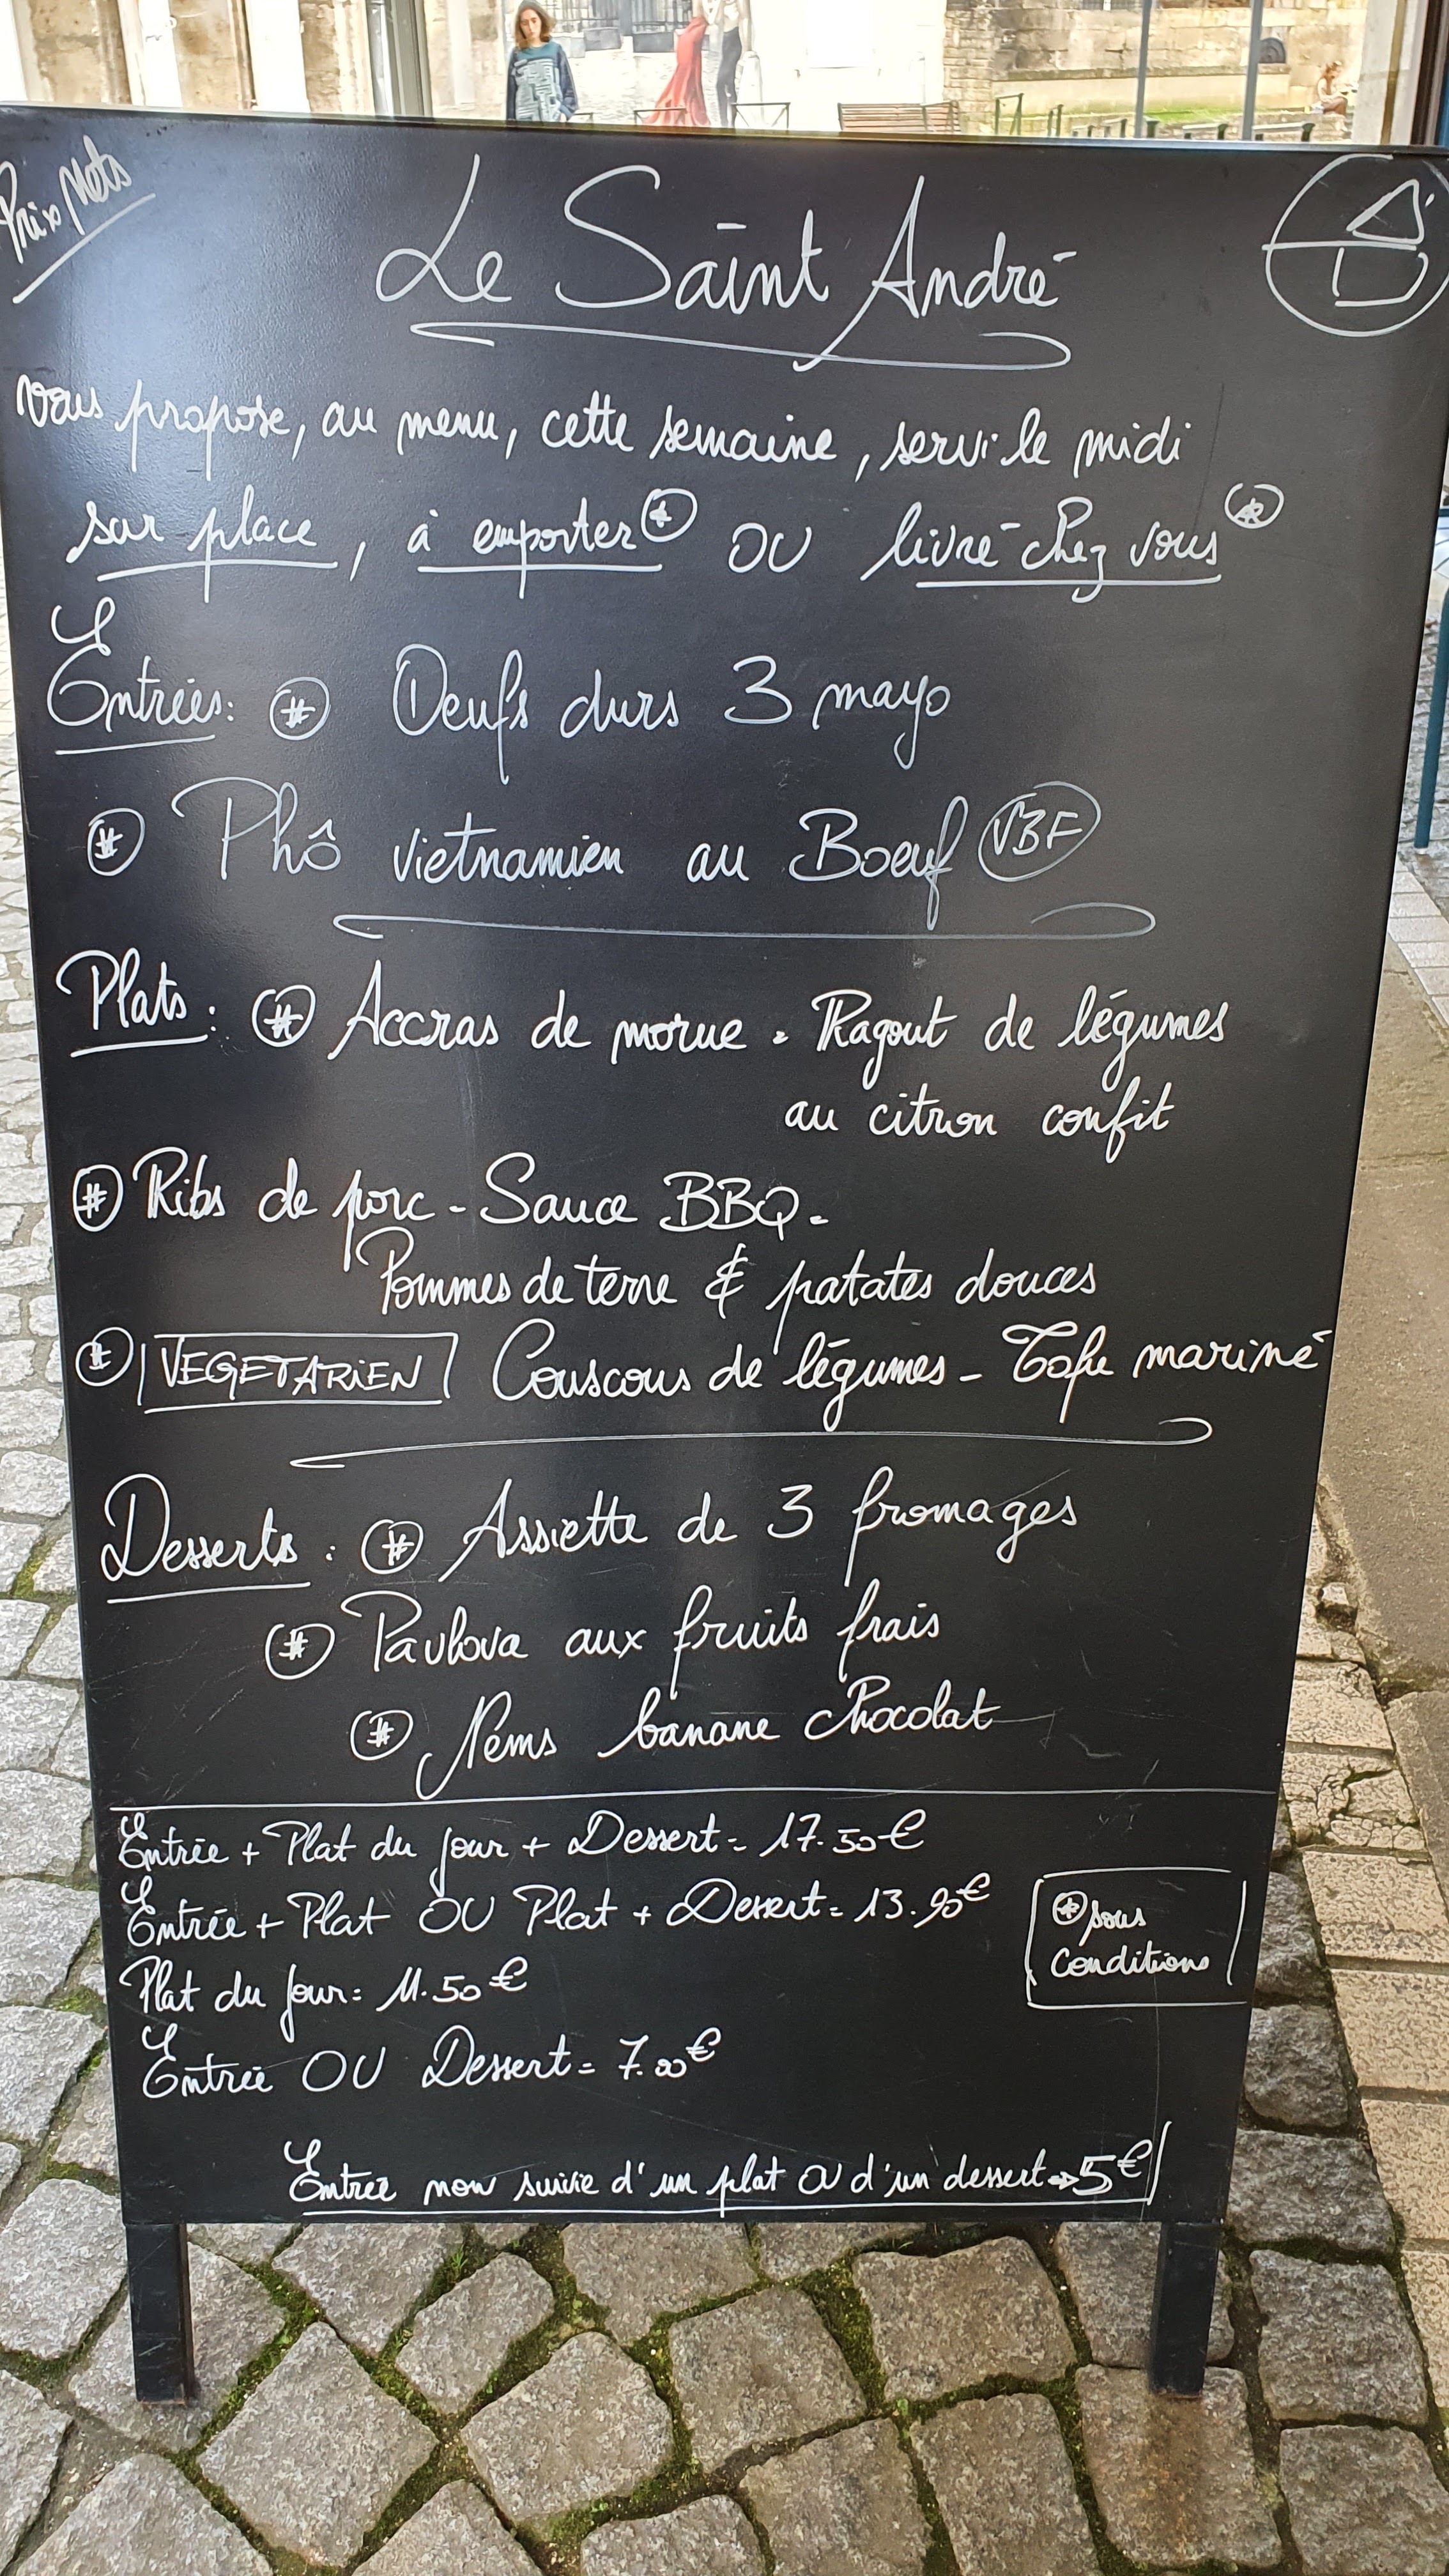 Prix Nets
Le Saint André
vous propose, au menu, cette semaine, servi le midi
sur place, à emporter* OU livré chez vous*
Entrées: # Oeufs durs 3 mayo
# Phô vietnamien au Boeuf VBF
Plats: # Accras de morue - Ragout de légumes
au citron confit
# Ribs de porc - Sauce BBQ -
Pommes de terre & patates douces
# VEGETARIEN Couscous de légumes - Tofu mariné
Desserts: # Assiette de 3 fromages
# Pavlova aux fruits frais
# Nems banane chocolat
Entrée + Plat du jour + Dessert = 17.50€
Entrée + Plat OU Plat + Dessert = 13.90€
*sous
conditions
Plat du jour = 11.50€
Entrée OU Dessert = 7.00€
Entrée non suivie d'un plat OU d'un dessert → 5€